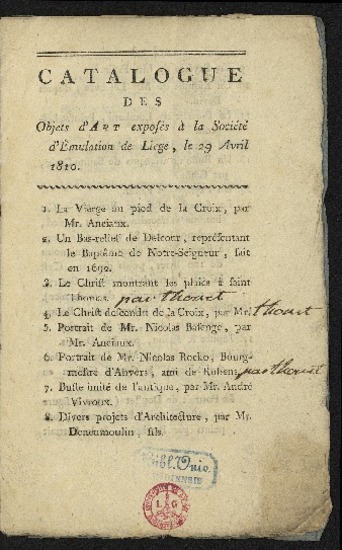 CATALOGUE
DES
Objets d'ART exposés à la Société
d'Émulation de Liege, le 29 Avril
1810.
1. La Vierge au pied de la Croix, par
Mr. Anciaux.
2. Un Bas-relief de Delcour, représentant
le Baptême de Notre-Seigneur, fait
en 1690.
3. Le Christ montrant les plaies à saint
Thomas. par thonet
4. Le Christ descendu de la Croix, par Mr. thonet
5. Portrait de Mr. Nicolas Bassenge, par
Mr. Anciaux.
6. Portrait de Mr. Nicolas Rockox, Bourg-
mestre d'Anvers, ami de Rubens, par thonet
7. Buste imité de l'antique, par Mr. André
Vivroux.
8. Divers projets d'Architecture, par Mr.
Deneumoulin, fils.
Bibl. Univ.
LEODIENSIS
L G